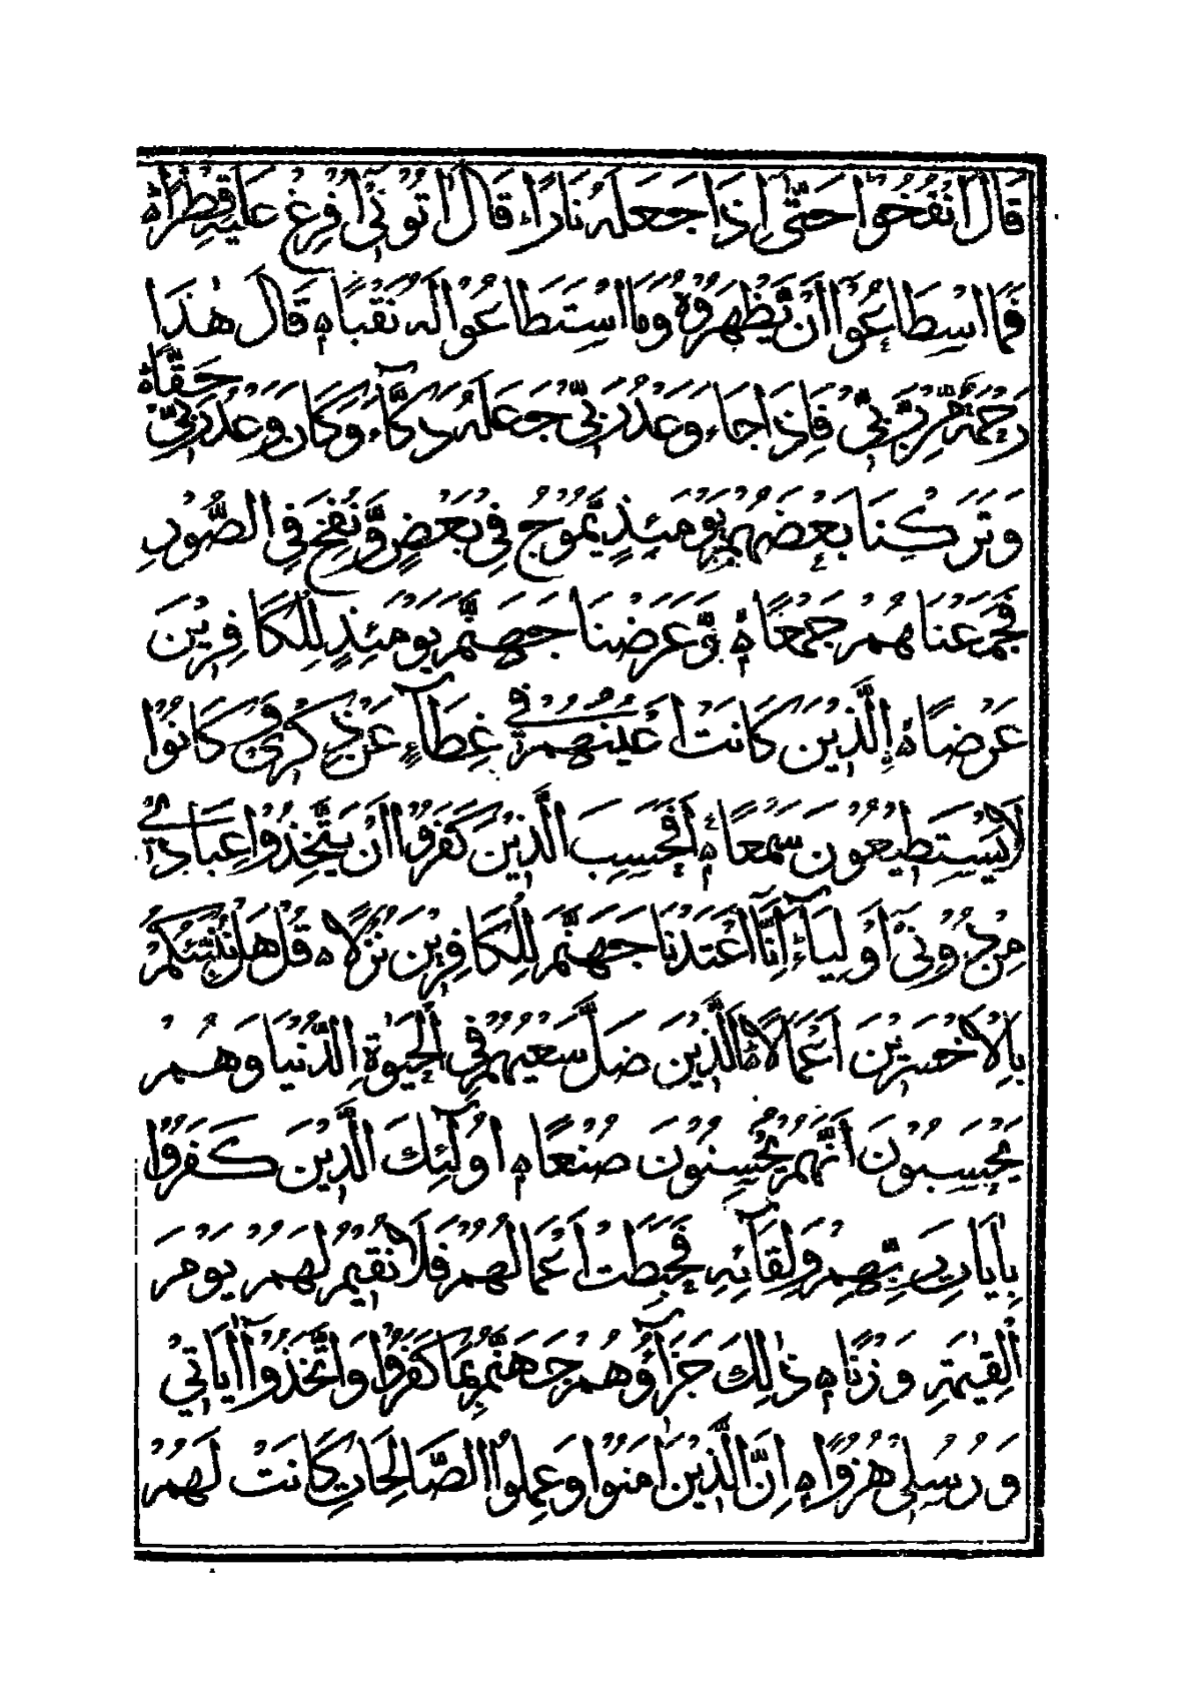 قَالَ انْفُخُوا حَتَّىٰ إِذَا جَعَلَهُ نَارًا قَالَ اٰتُوْنِيْ اُفْرِغْ عَلَيْهِ قِطْرًا ه
فَمَا اسْطَاعُوْا اَنْ يَّظْهَرُوْهُ وَمَا اسْتَطَاعُوْا لَهُ نَقْبًا ه قَالَ هٰذَا
رَحْمَةٌ مِّنْ رَّبِّيْ فَاِذَا جَاءَ وَعْدُ رَبِّيْ جَعَلَهُ دَكَّآءَ وَكَانَ وَعْدُ رَبِّيْ حَقًّا ه
وَتَرَكْنَا بَعْضَهُمْ يَوْمَئِذٍ يَّمُوْجُ فِيْ بَعْضٍ وَّنُفِخَ فِي الصُّوْرِ
فَجَمَعْنَاهُمْ جَمْعًا ه وَّعَرَضْنَا جَهَنَّمَ يَوْمَئِذٍ لِلْكَافِرِيْنَ
عَرْضًا ه اِلَّذِيْنَ كَانَتْ اَعْيُنُهُمْ فِيْ غِطَآءٍ عَنْ ذِكْرِيْ وَكَانُوْا
لَا يَسْتَطِيْعُوْنَ سَمْعًا ه اَفَحَسِبَ الَّذِيْنَ كَفَرُوْا اَنْ يَّتَّخِذُوْا عِبَادِيْ
مِنْ دُوْنِيْ اَوْلِيَآءَ اِنَّا اَعْتَدْنَا جَهَنَّمَ لِلْكَافِرِيْنَ نُزُلًا ه قُلْ هَلْ نُنَبِّئُكُمْ
بِالْاَخْسَرِيْنَ اَعْمَالًا ه اَلَّذِيْنَ ضَلَّ سَعْيُهُمْ فِي الْحَيٰوةِ الدُّنْيَا وَهُمْ
يَحْسَبُوْنَ اَنَّهُمْ يُحْسِنُوْنَ صُنْعًا ه اُولٰٓئِكَ الَّذِيْنَ كَفَرُوْا
بِاٰيَاتِ رَبِّهِمْ وَلِقَآئِهِ فَحَبِطَتْ اَعْمَالُهُمْ فَلَا نُقِيْمُ لَهُمْ يَوْمَ
الْقِيٰمَةِ وَزْنًا ه ذٰلِكَ جَزَآؤُهُمْ جَهَنَّمُ بِمَا كَفَرُوْا وَاتَّخَذُوْا اٰيَاتِيْ
وَرُسُلِيْ هُزُوًا ه اِنَّ الَّذِيْنَ اٰمَنُوْا وَعَمِلُوا الصَّالِحَاتِ كَانَتْ لَهُمْ